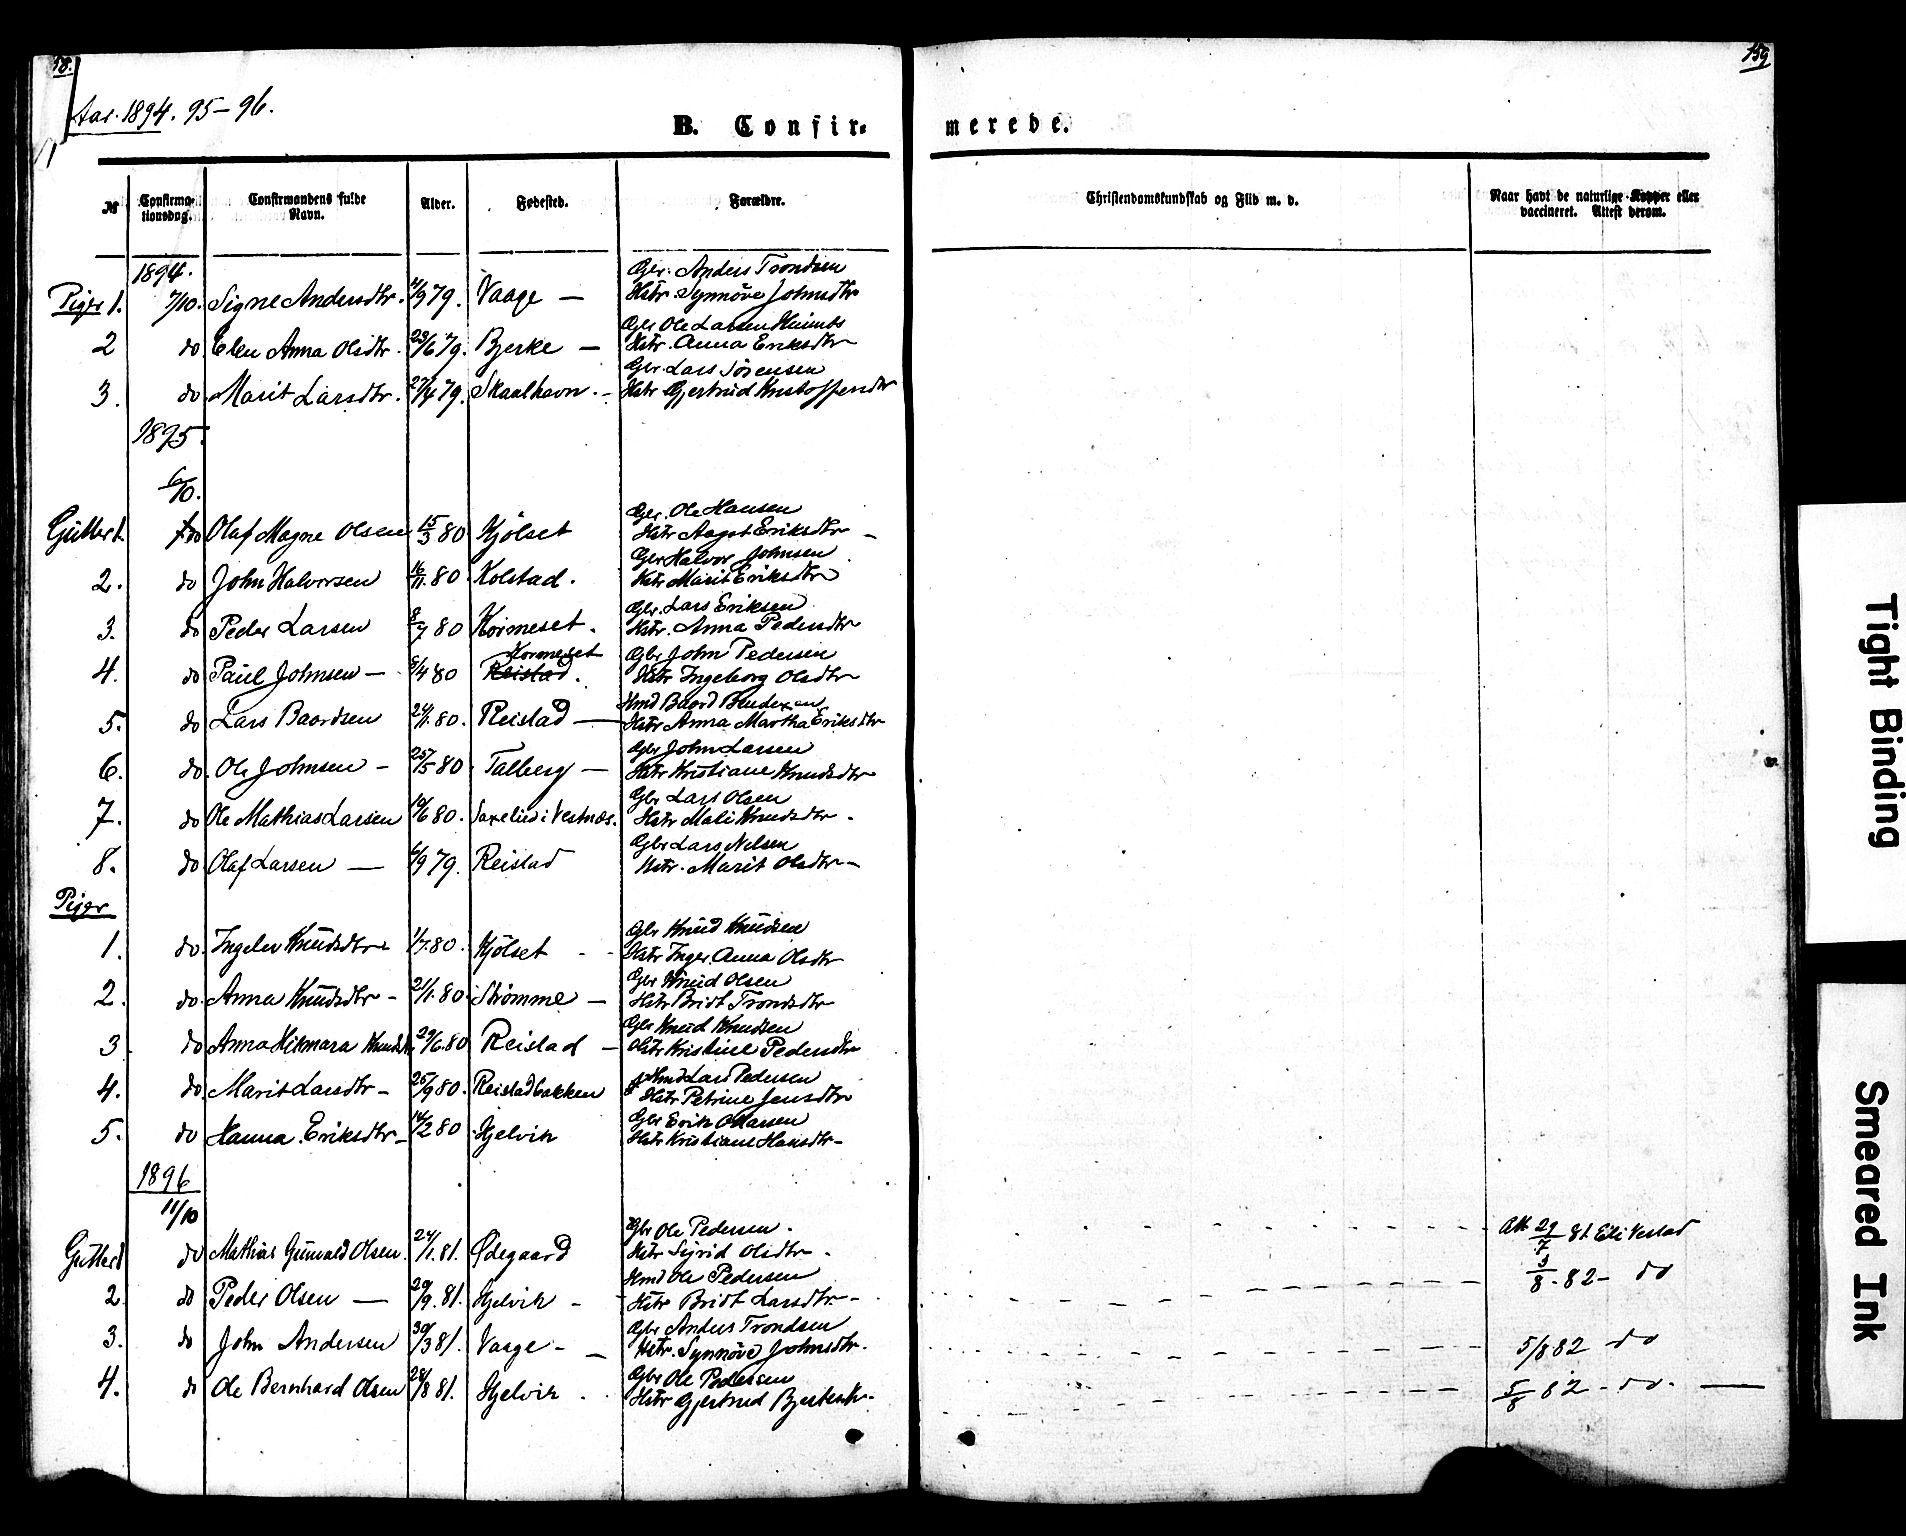 159
Aar. 1894. 95 – 96.
B. Confir= merede.
№ Confirma-tionsdag. Confirmandens fulde Navn. Alder. Fødested. Forældre. Christendomskundskab og Flid m. v. Naar havt de naturlige Kopper eller vaccineret. Attest derom.
1894.
Gbr. Anders Trondsen
Piger 1. 7/10. Signe Andersdtr. 4/9 79. Vaage – Hstr. Synnøve Johnsdtr
Gbr Ole Larsen
2 do Elen Anna Olsdtr. 23/6 79. Bjerke – Hstr. Anna Eriksdtr
Gbr. Lars Sørensen
3. do Marit Larsdtr. 27/4 79. Skaalhavn. – Hstr Gjertrud Kristoffersdtr
1895.
6/10.
Gbr. Ole Hansen
Gutter 1. do Olaf Magne Olsen 15/3 80 Kjølset Hstr Aagot Eriksdtr –
Gbr Halvor Johnsen
2. do John Halvorsen 16/11. 80. Kolstad. Hstr Marit Eriksdtr
Gbr. Lars Eriksen
3. do Peder Larsen 8/7 80 Kormeset. Hstr. Anna Pedersdtr
Kormeset Gbr John Pedersen
4. do Paul Johnsen – 5/4 80 Reistad. Hstr Ingeborg Olsdtr
Hmd Baard
5. do Lars Baardsen 24/1. 80. Reistad – Hstr Anna Martha Eriksdtr
Gbr John Larsen
6. do. Ole Johnsen – 25/5 80. Talberg – Hstr Kristiane Knudsdtr
Gbr Lars Olsen
7. do Ole Mathias Larsen 19/6 80. Saxelid i Vestnæs. Hstr Mali Knudsdtr.
Gbr Lars Nelsen
8. do Olaf Larsen – 6/9 79. Reistad Hstr. Marit Olsdtr –
Piger
Gbr Knud Knudsen
1. do. Ingelev Knudsdtr 1/7. 80. Kjølset Hstr Inger Anna Olsdtr
Gbr Knud Olsen
2. do. Anna Knudsdtr – 21/1. 80. Strømme – Hstr Brit Trondsdtr
Gbr Knud Knudsen
3. do Anna Hikmara Knudsdtr 29/6. 80 Reistad – Hstr Kristine Pedersdtr
Hmd Lars Pedersen
4. do Marit Larsdtr – 25/9 80. Reistadbakken Hstr Petrine Jensdtr
Gbr Erik
5. do Hanna Eriksdtr – 14/2 80 Hjelvik Hstr Kristiane Hansdtr –
1896
11/10
Gbr Ole Pedersen.
Gutter 1 do Mathias Gunvald Olsen. 24/1. 81. Ødegaard Hstr Sigrid Olsdtr. Att. 29/7 81. Eli Vestad
Hmd Ole Pedersen
2. do Peder Olsen – 29/9. 81. Hjelvik – Hstr Brit Larsdtr. – 3/8. 82 – do
Gbr Anders Trondsen
3. do John Andersen 30/3 81. Vaage – Hstr. Synnøve Johnsdtr. 5/8 82 do
Gbr Ole Pedersen
4. do Ole Bernhard Olsen 28/8 81. Hjelvik. Hstr Gjertrud 5/8 82 – do. –
Tight Binding
Smeared Ink